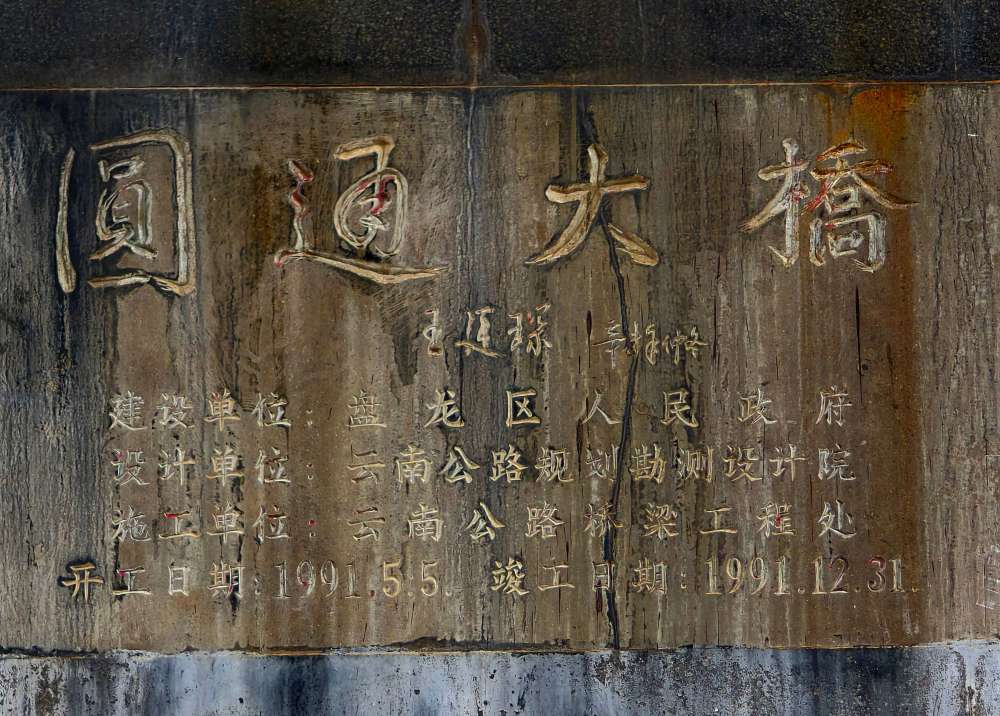 圆通大橋
王廷琛
建设单位：盘龙区人民政府
设计单位：云南公路规划勘测设计院
施工单位：云南公路桥梁工程处
开工日期:1991.5.5. 竣工日期:1991.12.31.